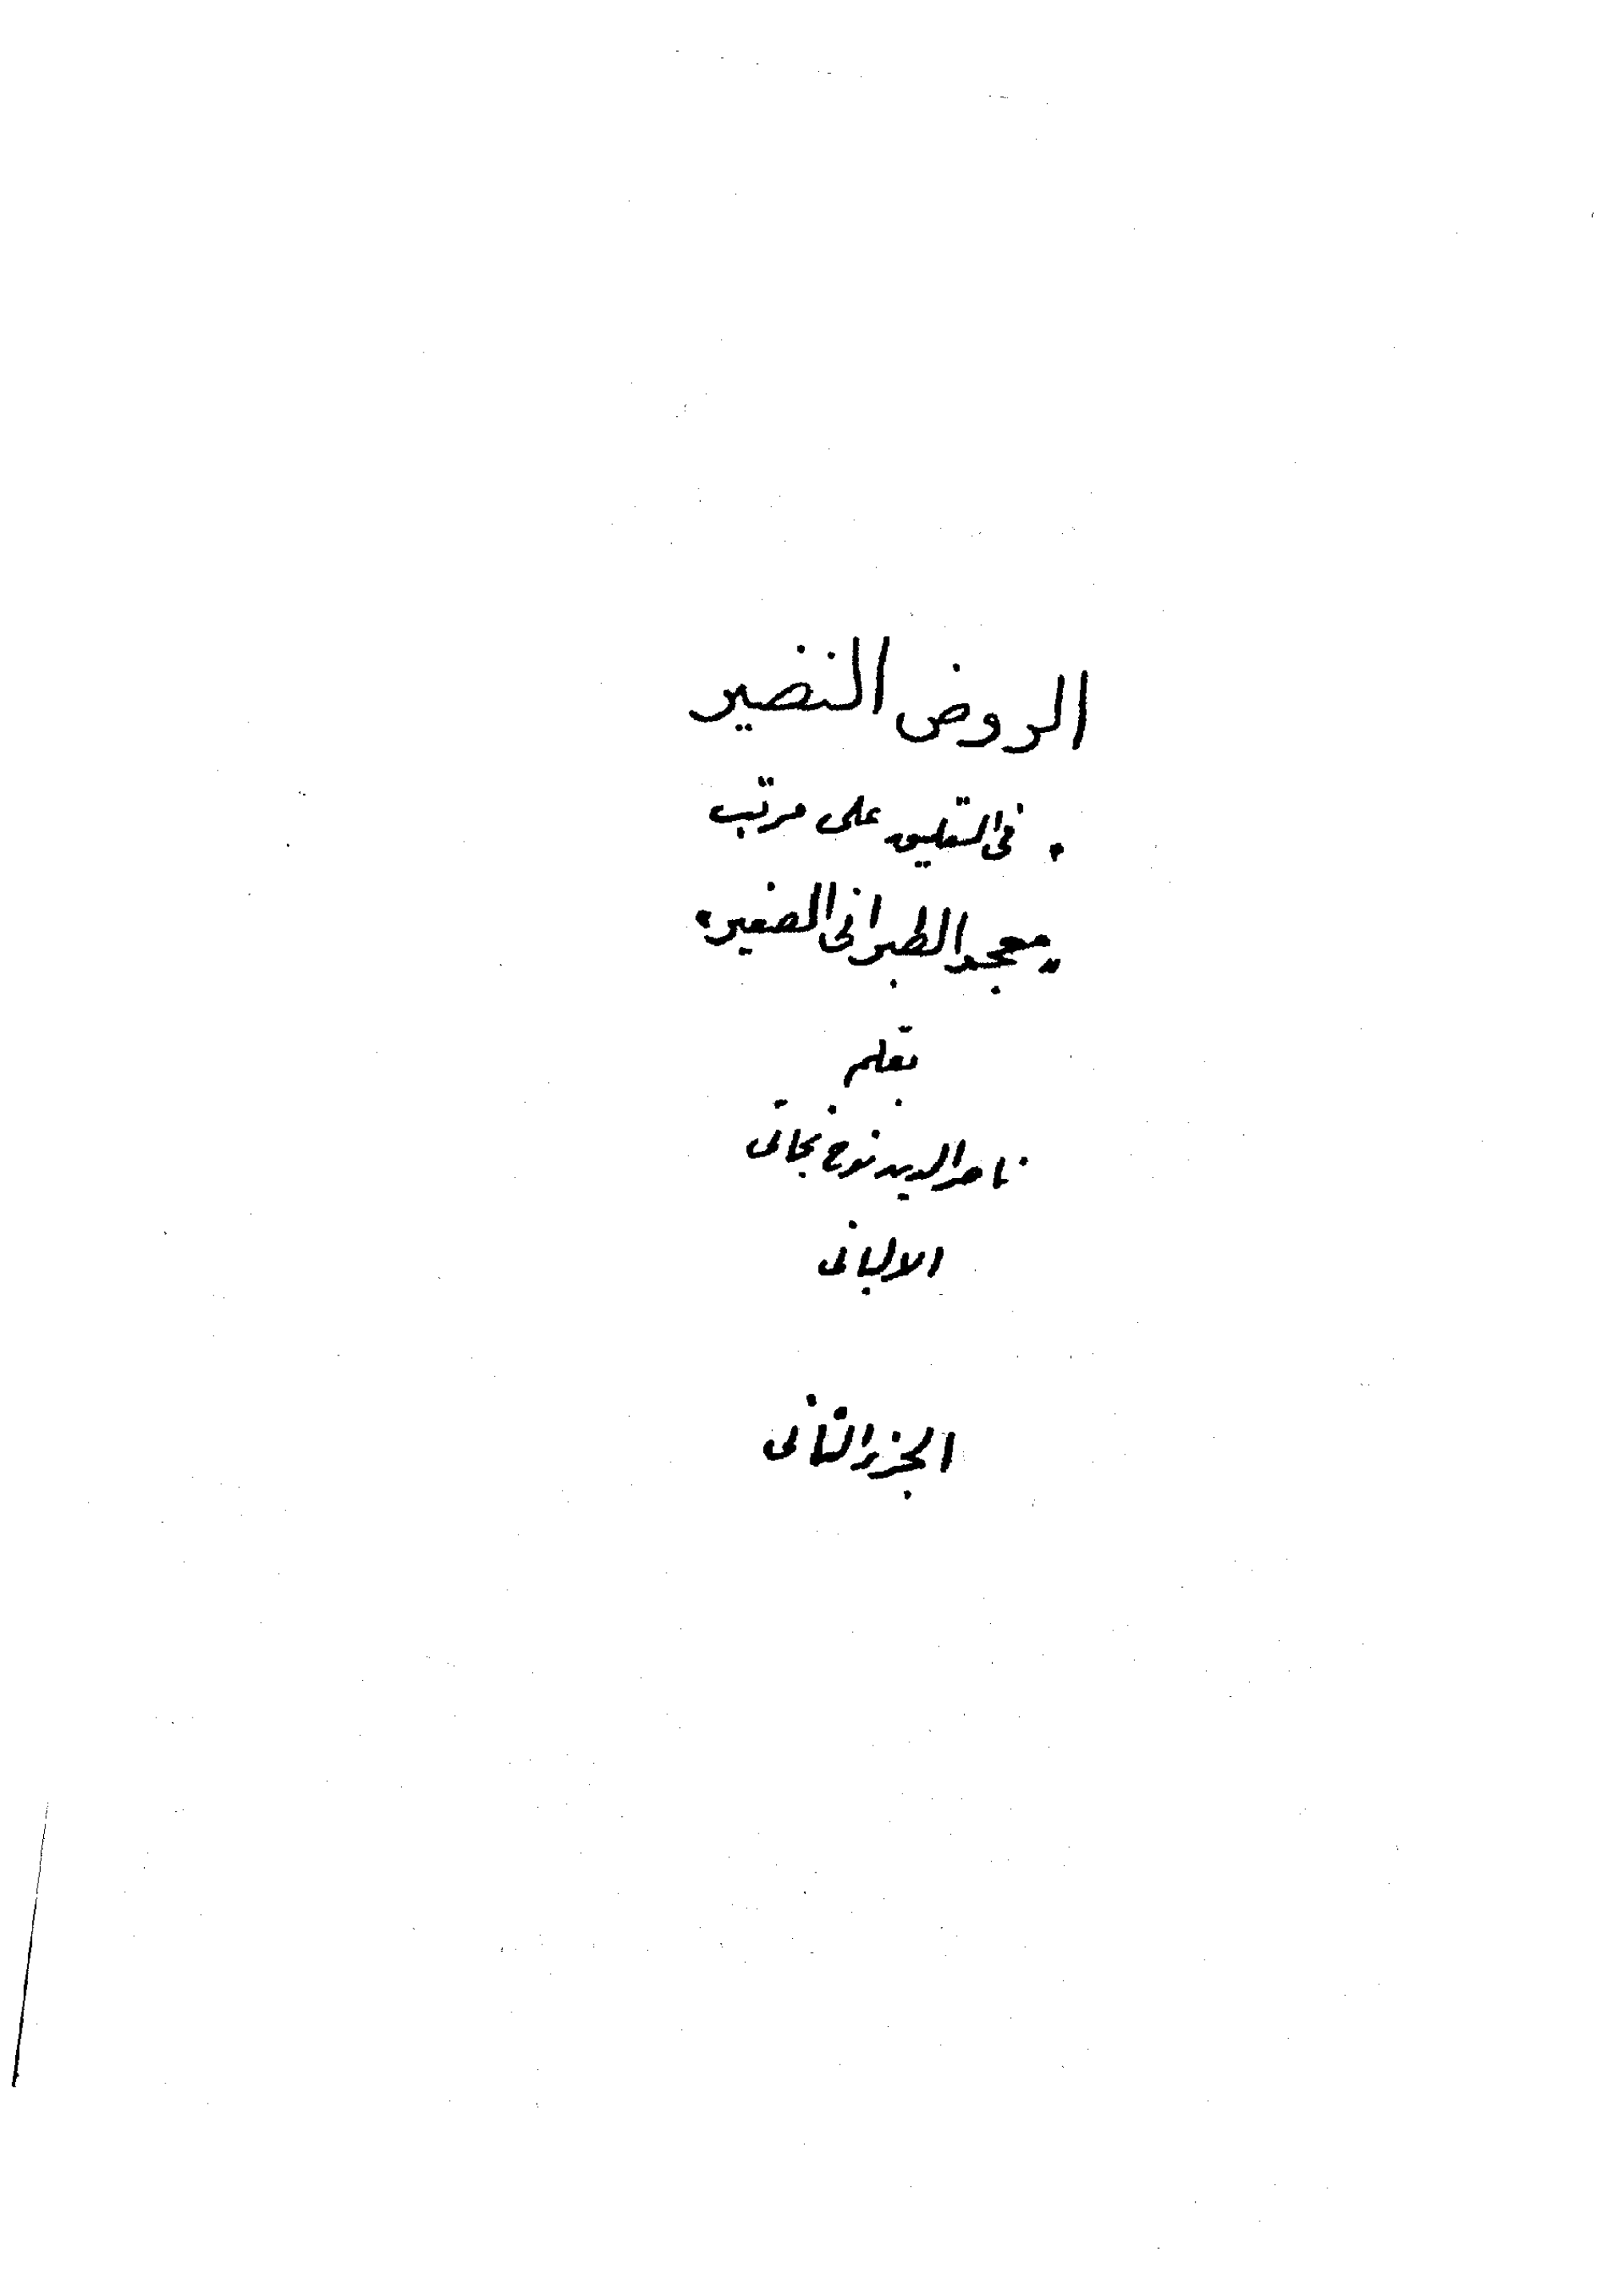 الروض النضير
في التعليق على مرتب
معجم الطبراني الصغير
بقلم
ناصر الدين نوح نجاتى
الالبانى
الجزء الثانى